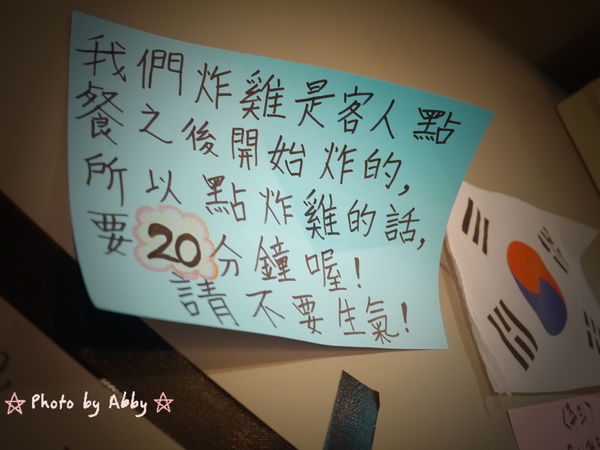 我們炸雞是客人點
餐之後開始炸的,
所以點炸雞的話,
要20分鐘喔!
請不要生氣!
☆ Photo by Abby ☆